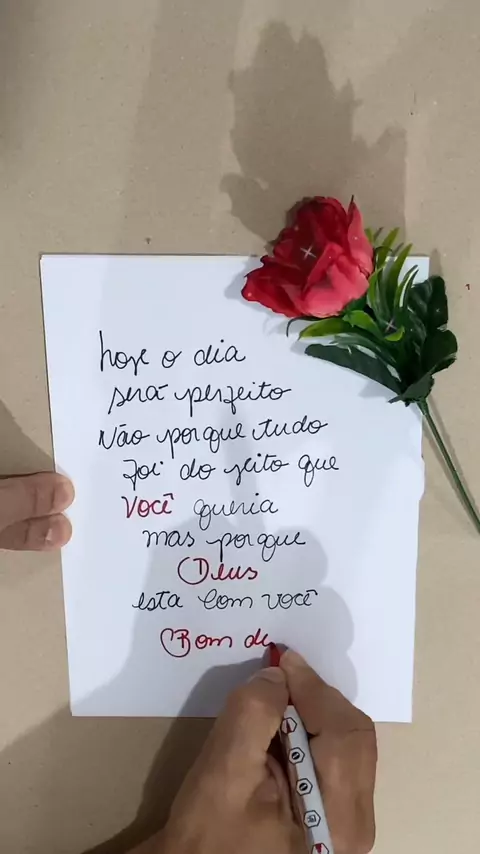 hoje o dia
será perfeito
Não porque tudo
foi do jeito que
Você queria
mas porque
Deus
esta com você
Bom di